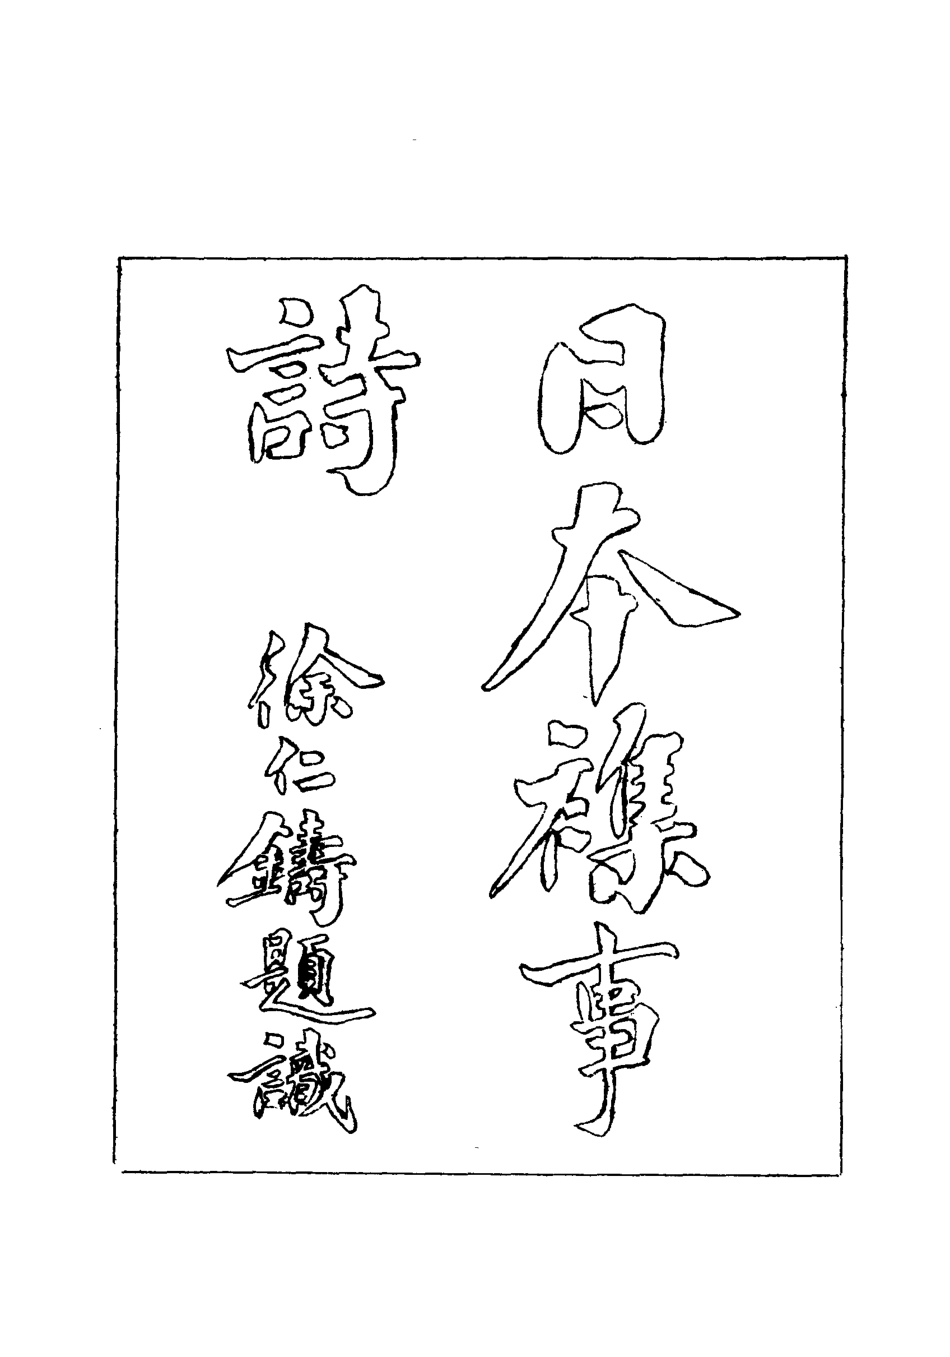 日本襍事
詩
徐仁鑄題識